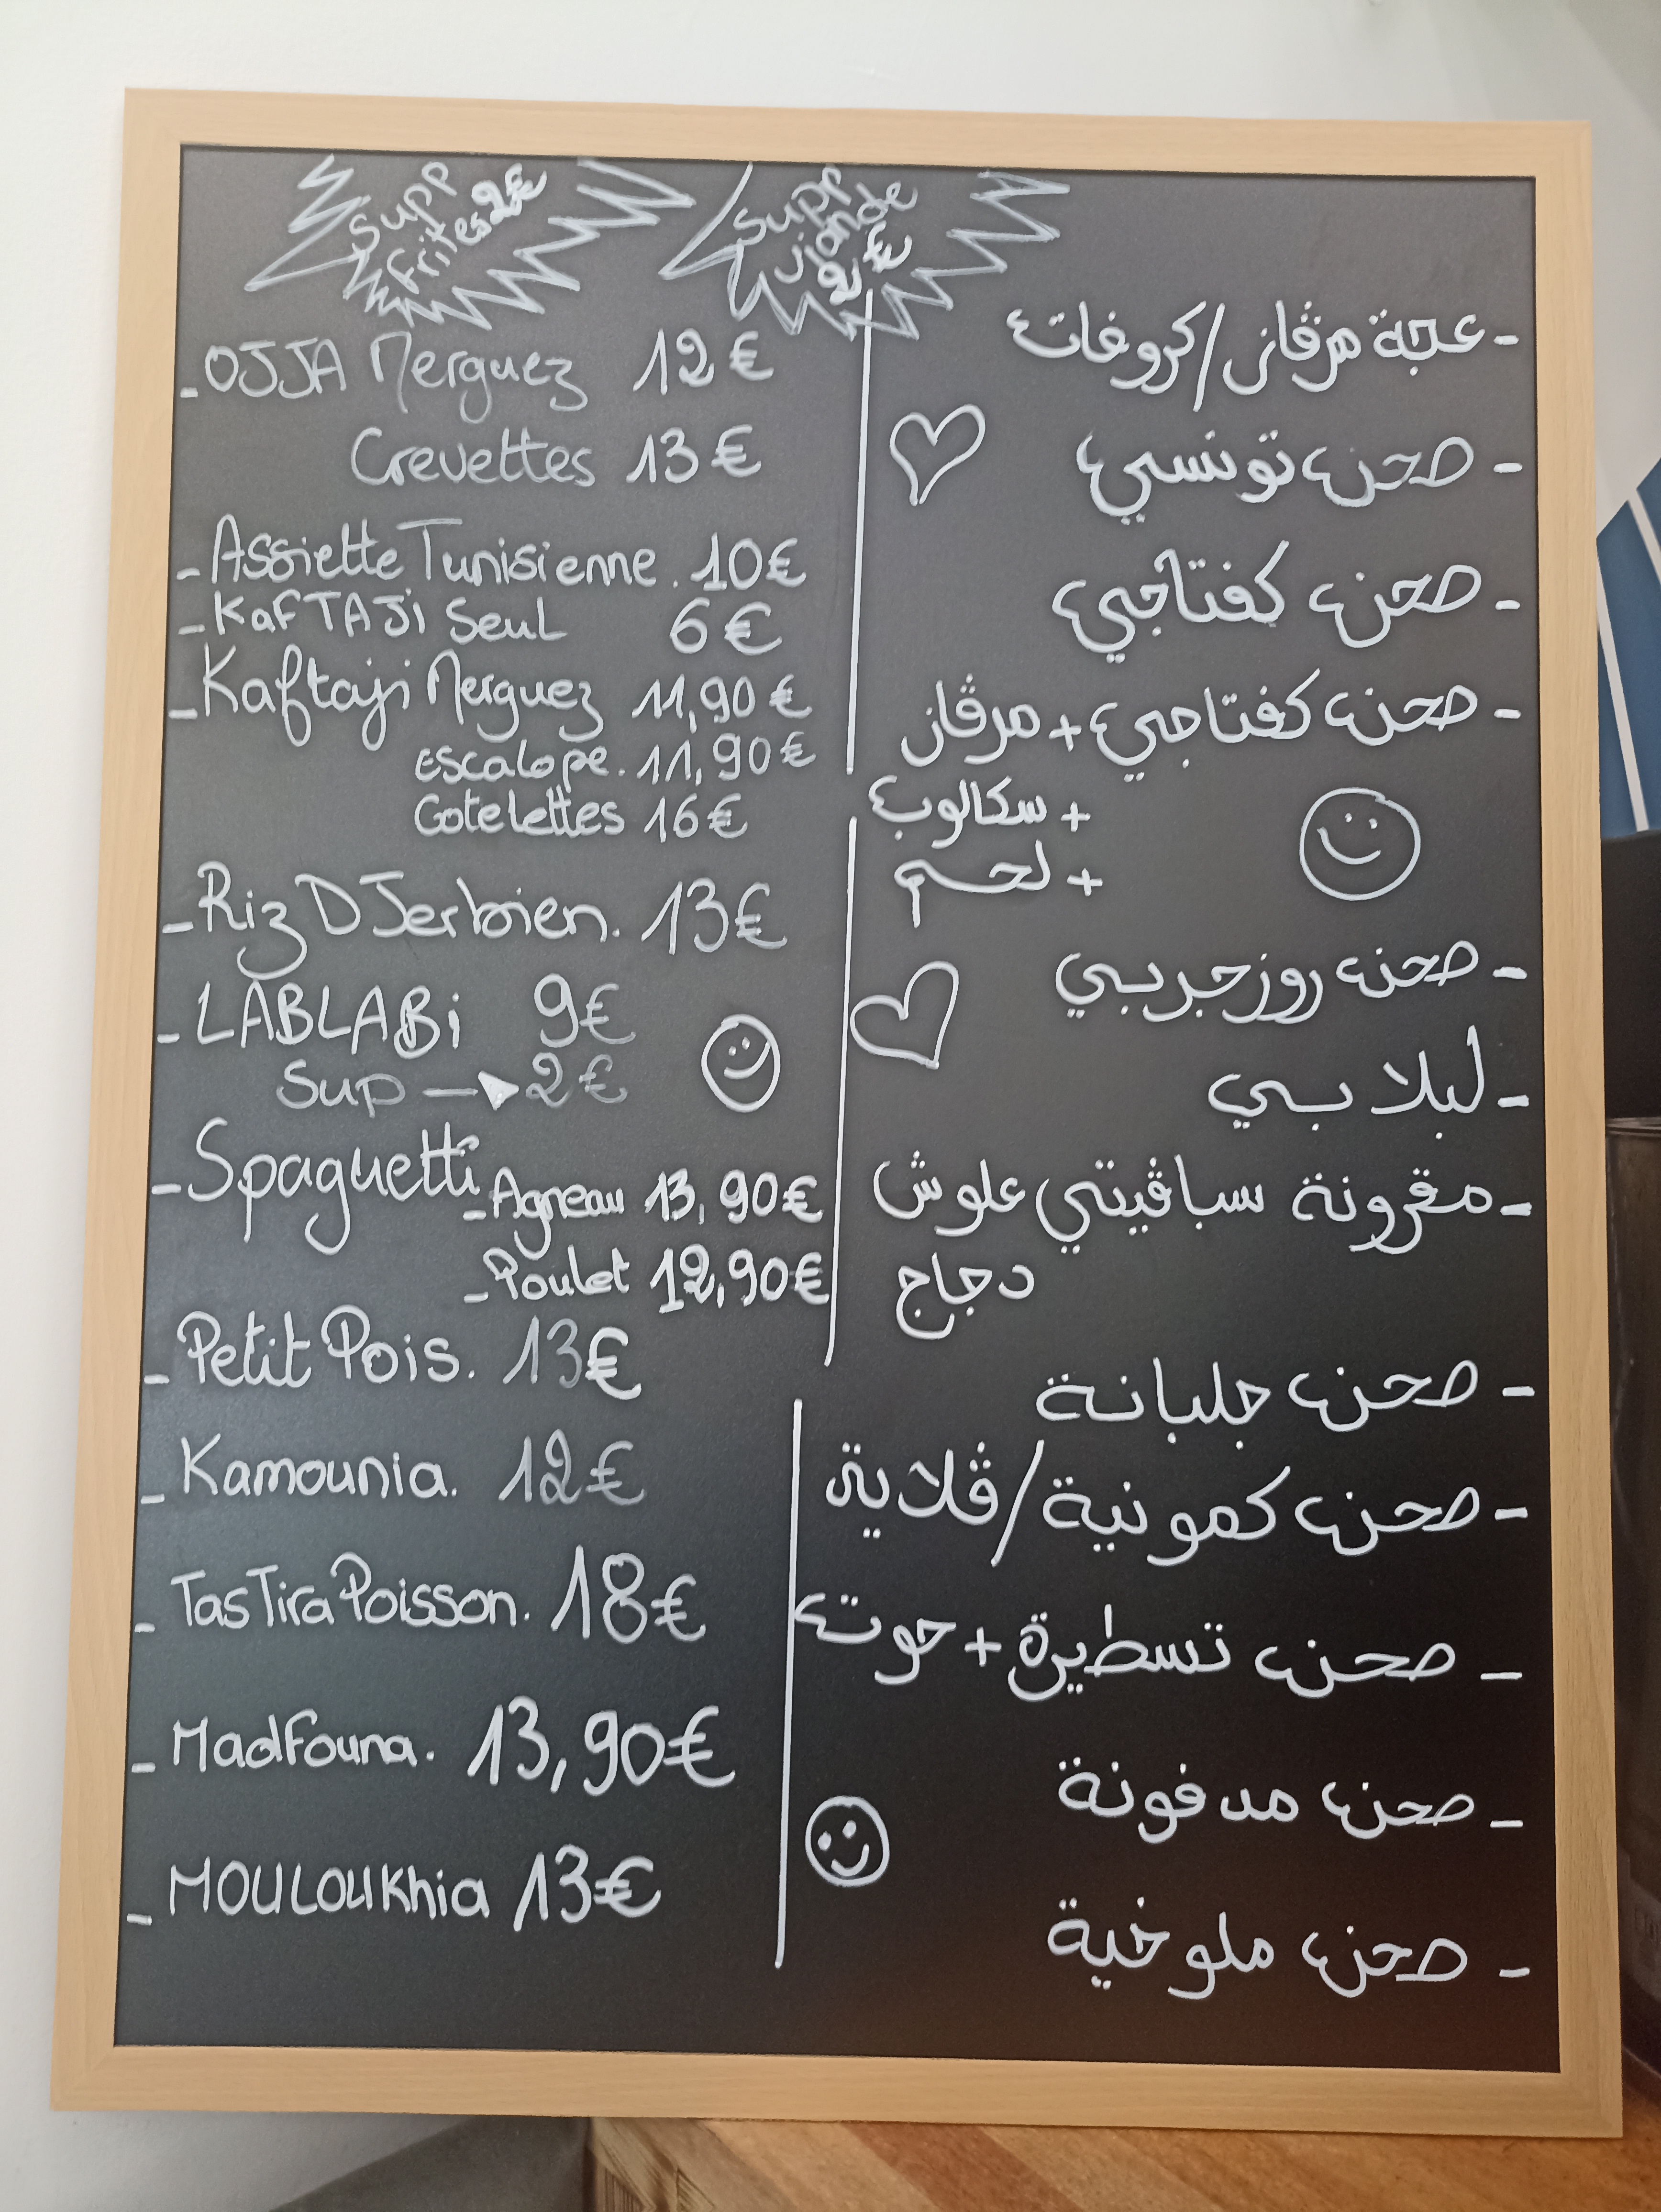 Supp
frites 2€
Supp
viande
2€
- OJJA Merguez 12€
Crevettes 13€
- Assiette Tunisienne. 10€
- KafTAJi Seul 6€
- Kaftaji Merguez 11,90€
escalope. 11,90€
Cotelettes 16€
- Riz DJerbien. 13€
- LABLABi 9€
Sup → 2€
- Spaguetti - Agneau 13,90€
- Poulet 12,90€
- Petit Pois. 13€
- Kamounia. 12€
- TasTira Poisson. 18€
- Madfouna. 13,90€
- MOULOUKhia 13€
- عجة مرڤاز/كروفات
- صحن تونسي
- صحن كفتاجي
- صحن كفتاجي + مرڤاز
+ سكالوب
+ لحم
- صحن روز جربي
- لبلابي
- مقرونة سباڤيتي علوش
دجاج
- صحن جلبانة
- صحن كمونية/ڤلاية
- صحن تسطيرة + حوت
- صحن مدفونة
- صحن ملوخية